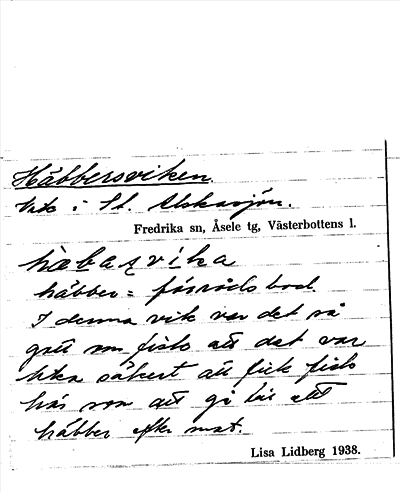 Häbbersviken.
Vik i St. Alskasjön.
Fredrika sn, Åsele tg, Västerbottens l.
häbber = förrådsbod.
I denna vik var det så
gott om fisk att det var
lika säkert att få fisk
här som att gå till ett
häbber efter mat.
Lisa Lidberg 1938.